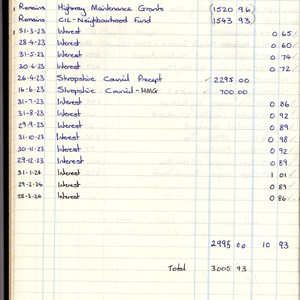 Remains Highway Maintenance Grants (1520 96)
Remains CIL-Neighbourhood Fund (1543 93)
31-3-23 Interest 0 65
28-4-23 Interest 0 60
31-5-23 Interest 0 74
30-6-23 Interest 0 72
26-4-23 Shropshire Council Precept 2295 00
16-6-23 Shropshire Council-HMG 700 00
31-7-23 Interest 0 86
31-8-23 Interest 0 92
29-9-23 Interest 0 89
31-10-23 Interest 0 98
30-11-23 Interest 0 92
29-12-23 Interest 0 89
31-1-24 Interest 1 01
29-2-24 Interest 0 89
28-3-24 Interest 0 86
2995 00 10 93
Total 3005 93